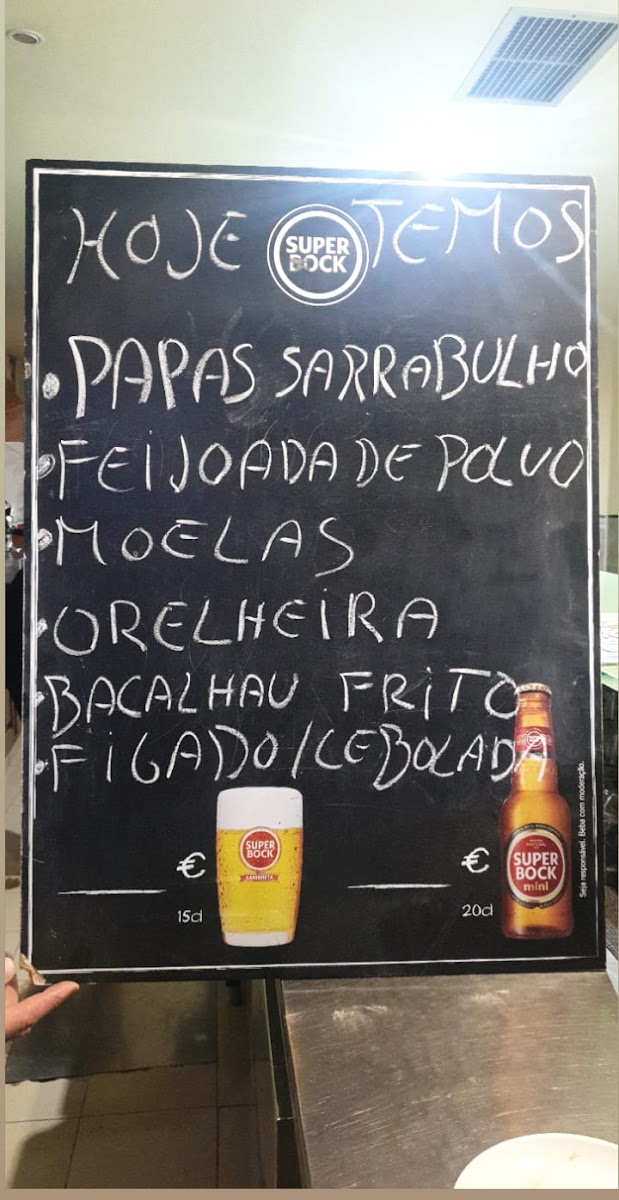 HOJE SUPER BOCK TEMOS
• PAPAS SARRABULHO
• FEIJOADA DE POLVO
• MOELAS
• ORELHEIRA
• BACALHAU FRITO
• FIGADO/CEBOLADA
€
15cl
SUPER
BOCK
€
20cl
SUPER
BOCK
mini
Seja responsável. Beba com moderação.